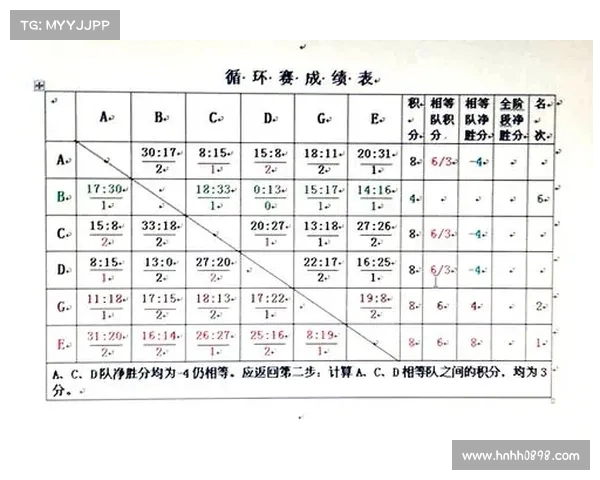 TG: MYYJJPP
循环赛成绩表
A B C D G E 积分 相等队积分 相等队净胜分 全阶段净胜分 名次
A 30:17/2 8:15/1 15:8/2 18:11/2 20:31/1 8 6/3 -4
B 17:30/1 18:33/1 0:13/0 15:17/1 14:16/1 4 6
C 15:8/2 33:18/2 20:27/1 13:18/1 27:26/2 8 6/3 -4
D 8:15/1 13:0/2 27:20/2 22:17/2 16:25/1 8 6/3 -4
G 11:18/1 17:15/2 18:13/2 17:22/1 19:8/2 8 6 4 2
E 31:20/2 16:14/2 26:27/1 25:16/2 8:19/1 8 6 8 1
A、C、D队净胜分均为-4仍相等。应返回第二步：计算A、C、D相等队之间的积分，均为3
分。
www.hnhh0898.com